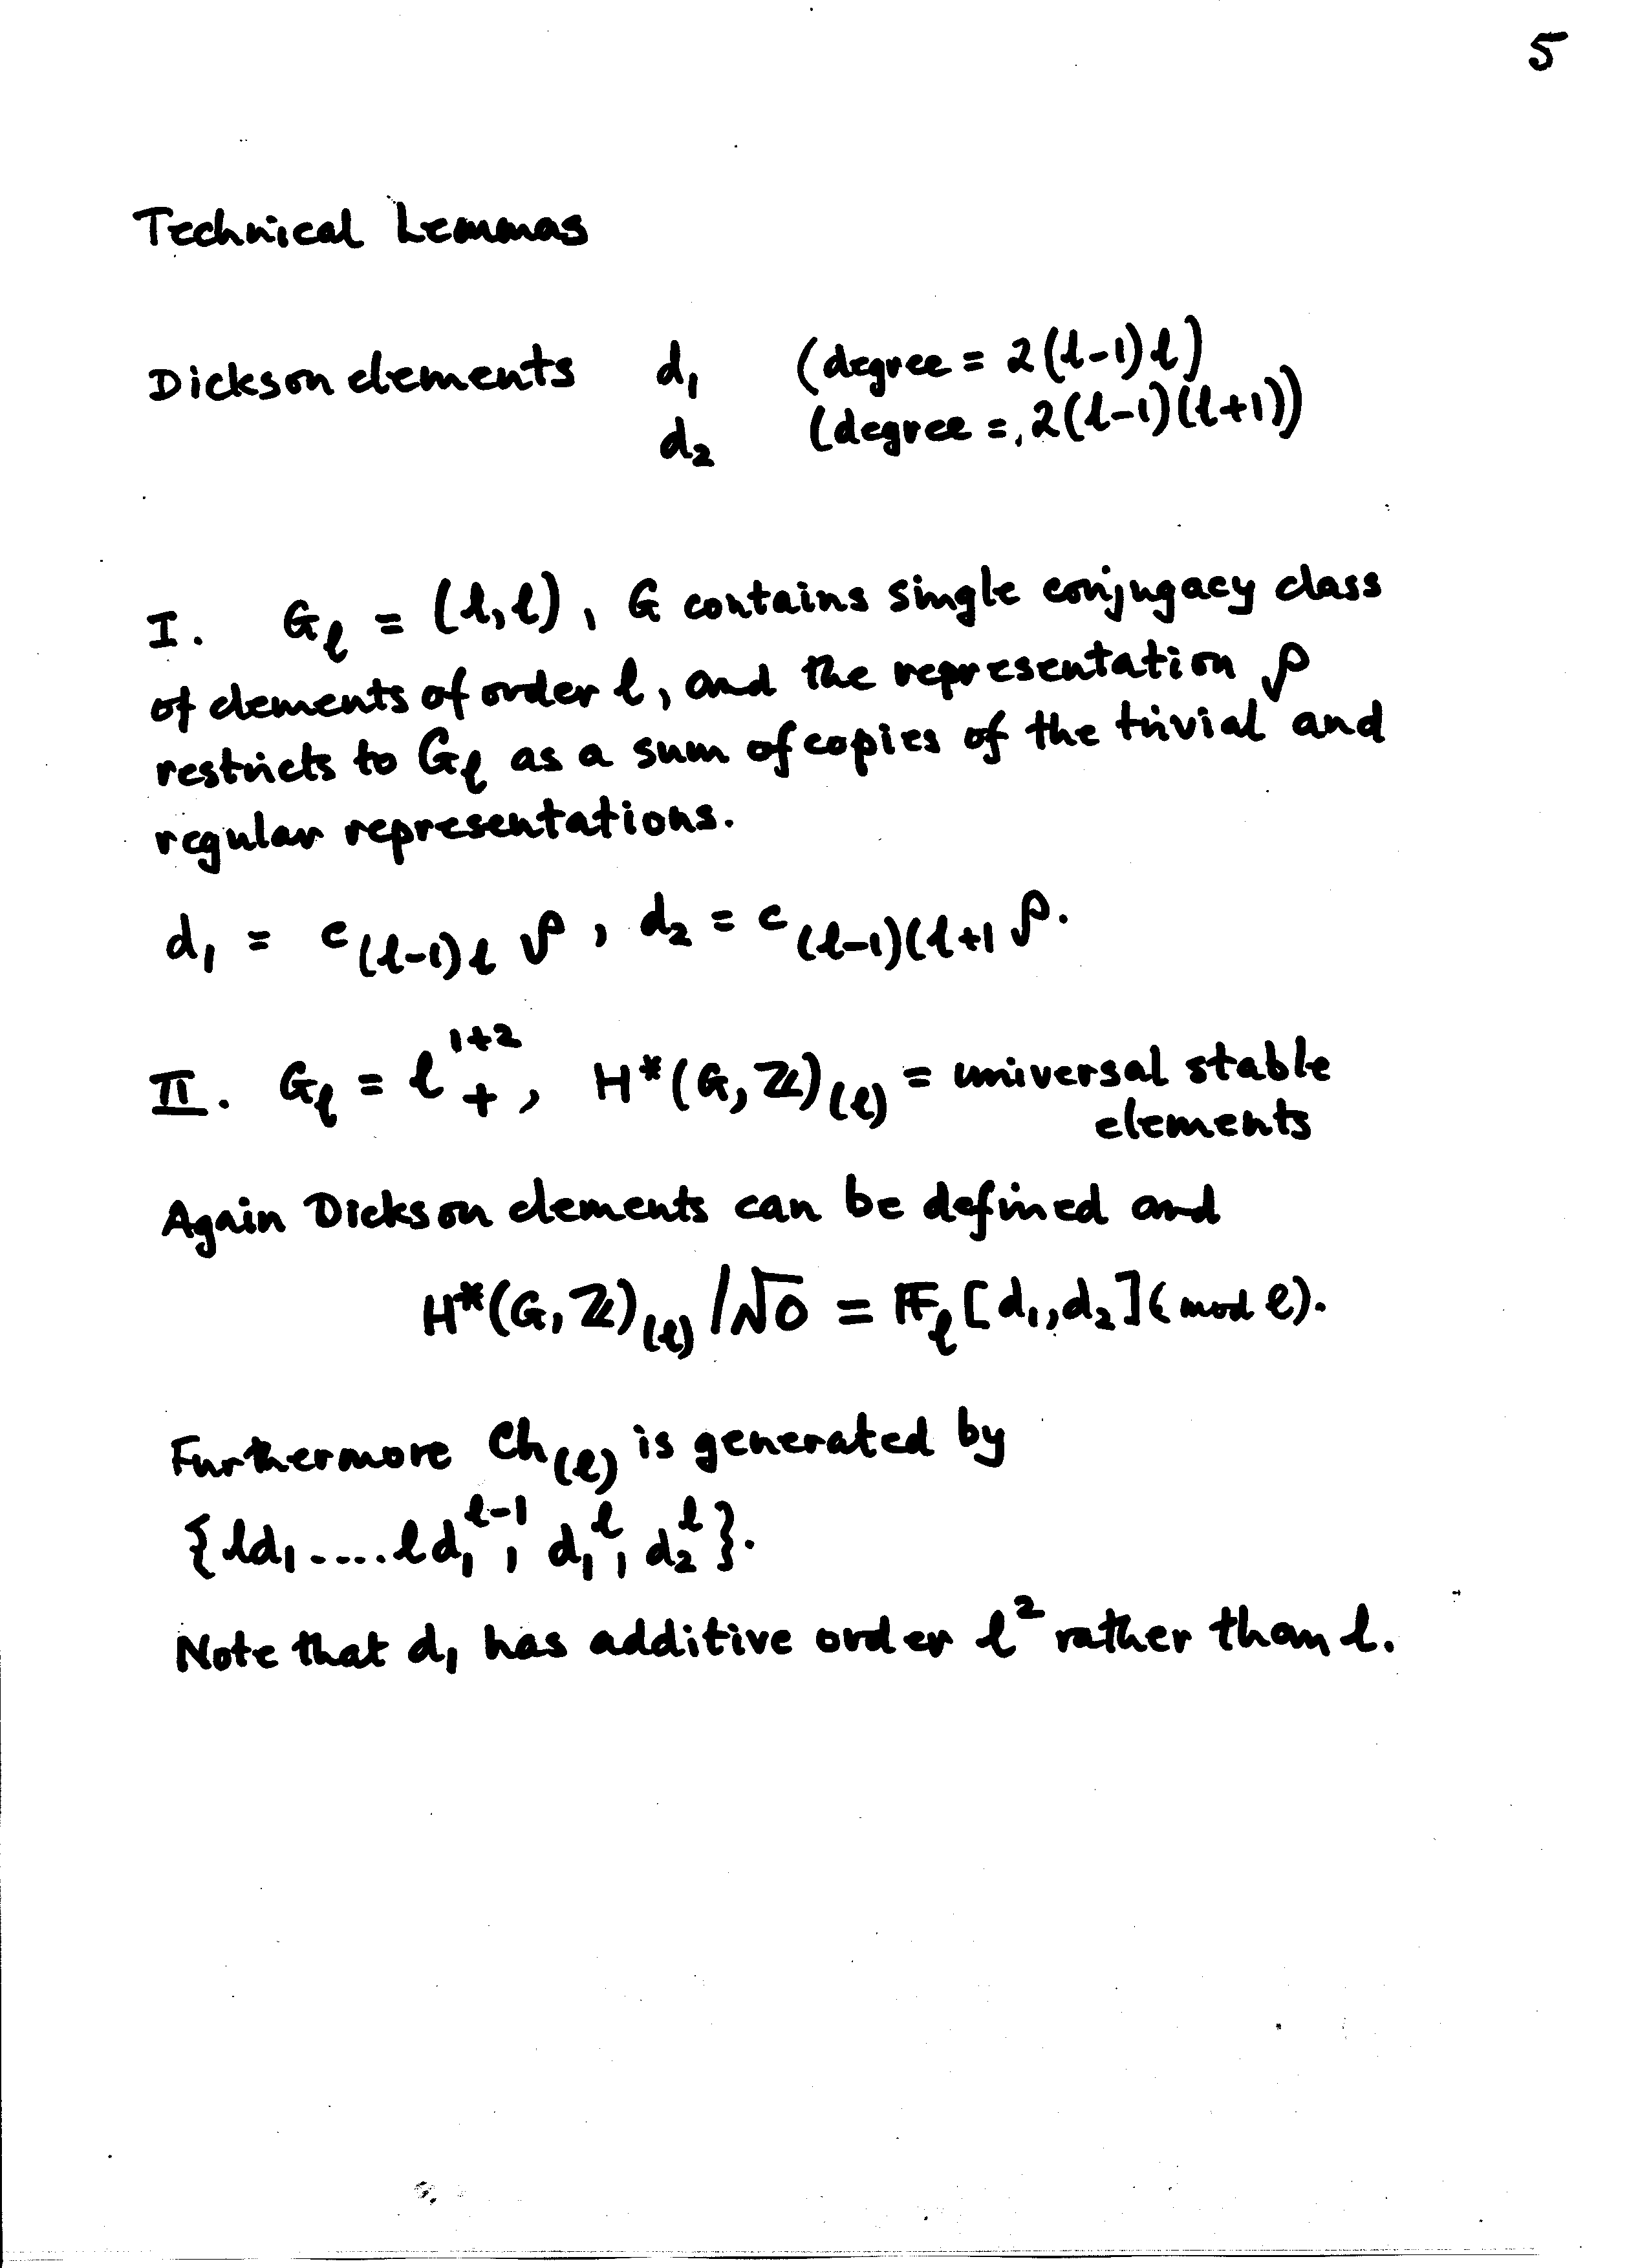 5
Technical Lemmas
Dickson elements d₁ (degree = 2(l-1)l)
d₂ (degree = 2(l-1)(l+1))
I. G_l = (l,l), G contains single conjugacy class
of elements of order l, and the representation ρ
restricts to G_l as a sum of copies of the trivial and
regular representations.
d₁ = c_{(l-1)l} ρ, d₂ = c_{(l-1)(l+1} ρ.
II. G_l = l_+^{1+2}, H*(G,ℤ)_{(l)} = universal stable
elements
Again Dickson elements can be defined and
H*(G,ℤ)_{(l)} /√0 = 𝔽_l [d₁,d₂] (mod l).
Furthermore Ch_{(l)} is generated by
{ld₁.....ld₁^{l-1}, d₁^l, d₂^l}.
Note that d₁ has additive order l² rather than l.